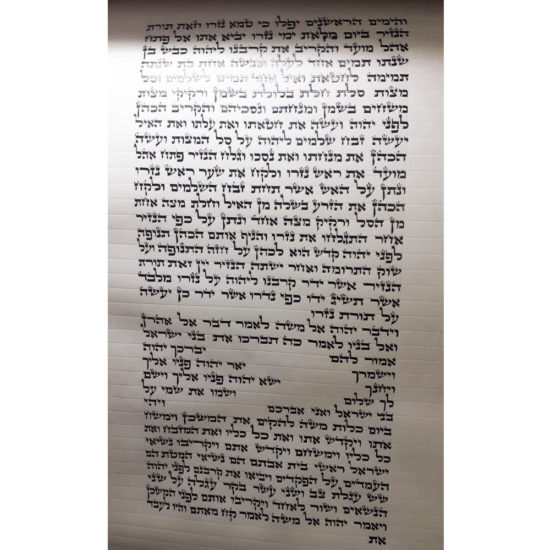 והימים הראשנים יפלו כי טמא נזרו וזאת תורת
הנזיר ביום מלאת ימי נזרו יביא אתו אל פתח
אהל מועד והקריב את קרבנו ליהוה כבש בן
שנתו תמים אחד לעלה וכבשה אחת בת שנתה
תמימה לחטאת ואיל אחד תמים לשלמים וסל
מצות סלת חלת בלולת בשמן ורקיקי מצות
משחים בשמן ומנחתם ונסכיהם והקריב הכהן
לפני יהוה ועשה את חטאתו ואת עלתו ואת האיל
יעשה זבח שלמים ליהוה על סל המצות ועשה
הכהן את מנחתו ואת נסכו וגלח הנזיר פתח אהל
מועד את ראש נזרו ולקח את שער ראש נזרו
ונתן על האש אשר תחת זבח השלמים ולקח
הכהן את הזרע בשלה מן האיל וחלת מצה אחת
מן הסל ורקיק מצה אחד ונתן על כפי הנזיר
אחר התגלחו את נזרו והניף אותם הכהן תנופה
לפני יהוה קדש הוא לכהן על חזה התנופה ועל
שוק התרומה ואחר ישתה הנזיר יין זאת תורת
הנזיר אשר ידר קרבנו ליהוה על נזרו מלבד
אשר תשיג ידו כפי נדרו אשר ידר כן יעשה
על תורת נזרו
וידבר יהוה אל משה לאמר דבר אל אהרן
ואל בניו לאמר כה תברכו את בני ישראל
אמור להם יברכך יהוה
וישמרך יאר יהוה פניו אליך
ויחנך ישא יהוה פניו אליך וישם
לך שלום ושמו את שמי על
בני ישראל ואני אברכם ויהי
ביום כלות משה להקים את המשכן וימשח
אתו ויקדש אתו ואת כל כליו ואת המזבח ואת
כל כליו וימשחם ויקדש אתם ויקריבו נשיאי
ישראל ראשי בית אבתם הם נשיאי המטת הם
העמדים על הפקדים ויביאו את קרבנם לפני יהוה
שש עגלת צב ושני עשר בקר עגלה על שני
הנשאים ושור לאחד ויקריבו אותם לפני המשכן
ויאמר יהוה אל משה לאמר קח מאתם והיו לעבד
את